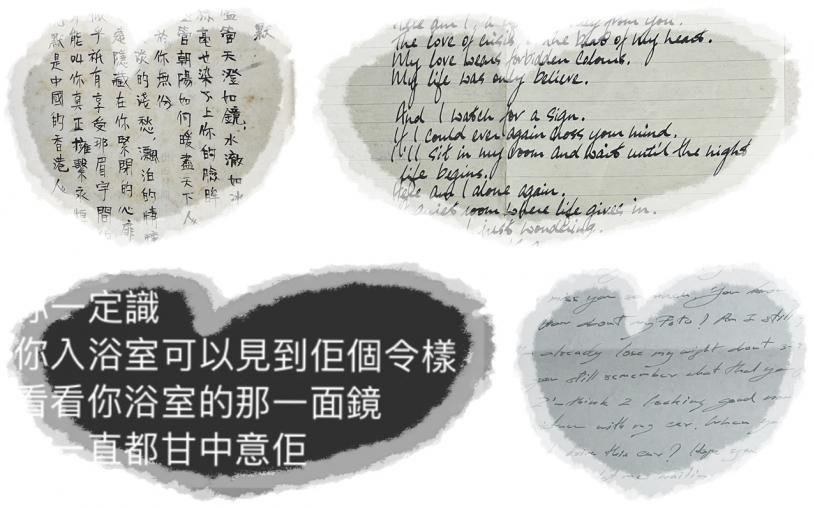 默
管天澄如鏡，水澈如冰
毫也染不上你的臉眸
管朝陽如何暖盡天下人
於你無份
淡的淺愁，飄泊的情
隱藏在你緊閉的心扉
乎祇有享受那眉宇間
能叫你真正擁繫永恒
默是中國的香港人
Here am I, a from you.
The love of crisis, the beat of my heart.
My love wears forbidden colours.
My life was only believe.
And I watch for a sign.
If I could ever again cross your mind.
I'll sit in my room and wait until the night
life begins.
Here am I alone again.
quiet room where life gives in.
I just wondering.
你一定識
你入浴室可以見到佢個令樣
看看你浴室的那一面鏡
一直都甘中意佢
miss you so much. You
about my Poto? Am I still
already lose my night about
still remember what that
think I looking good
with my car. When you
this car? Hope you